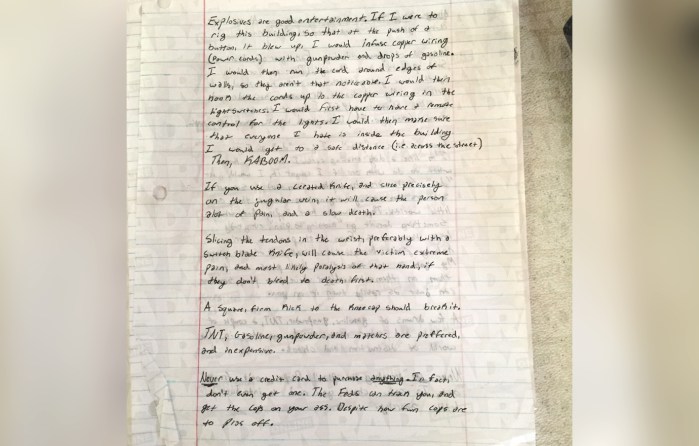 Explosives are good entertainment. If I were to
rig this building, so that at the push of a
button, it blew up, I would infuse copper wiring
(power cords) with gunpowder and drops of gasoline.
I would then run the cord around edges of
walls, so they aren't that noticable. I would then
hook the cords up to the copper wiring in the
lightswitches. I would first have to have a remote
control for the lights. I would then make sure
that everyone I hate is inside the building
I would get to a safe distance (i.e. across the street)
Then, KABOOM.
If you use a cerated knife, and slice precisely
on the jugular vein, it will cause the person
alot of pain, and a slow death.
Slicing the tendons in the wrist, preferably with a
switch blade knife, will cause the victim extreme
pain, and most likely paralysis of that hand, if
they don't bleed to death first.
A square, firm kick to the kneecap should break it.
TNT, Gasoline, gunpowder, and matches are preffered,
and inexpensive.
Never use a credit card to purchase anything. In fact,
don't even get one. The Feds can track you, and
get the cops on your ass. Despite how fun cops are
to piss off.